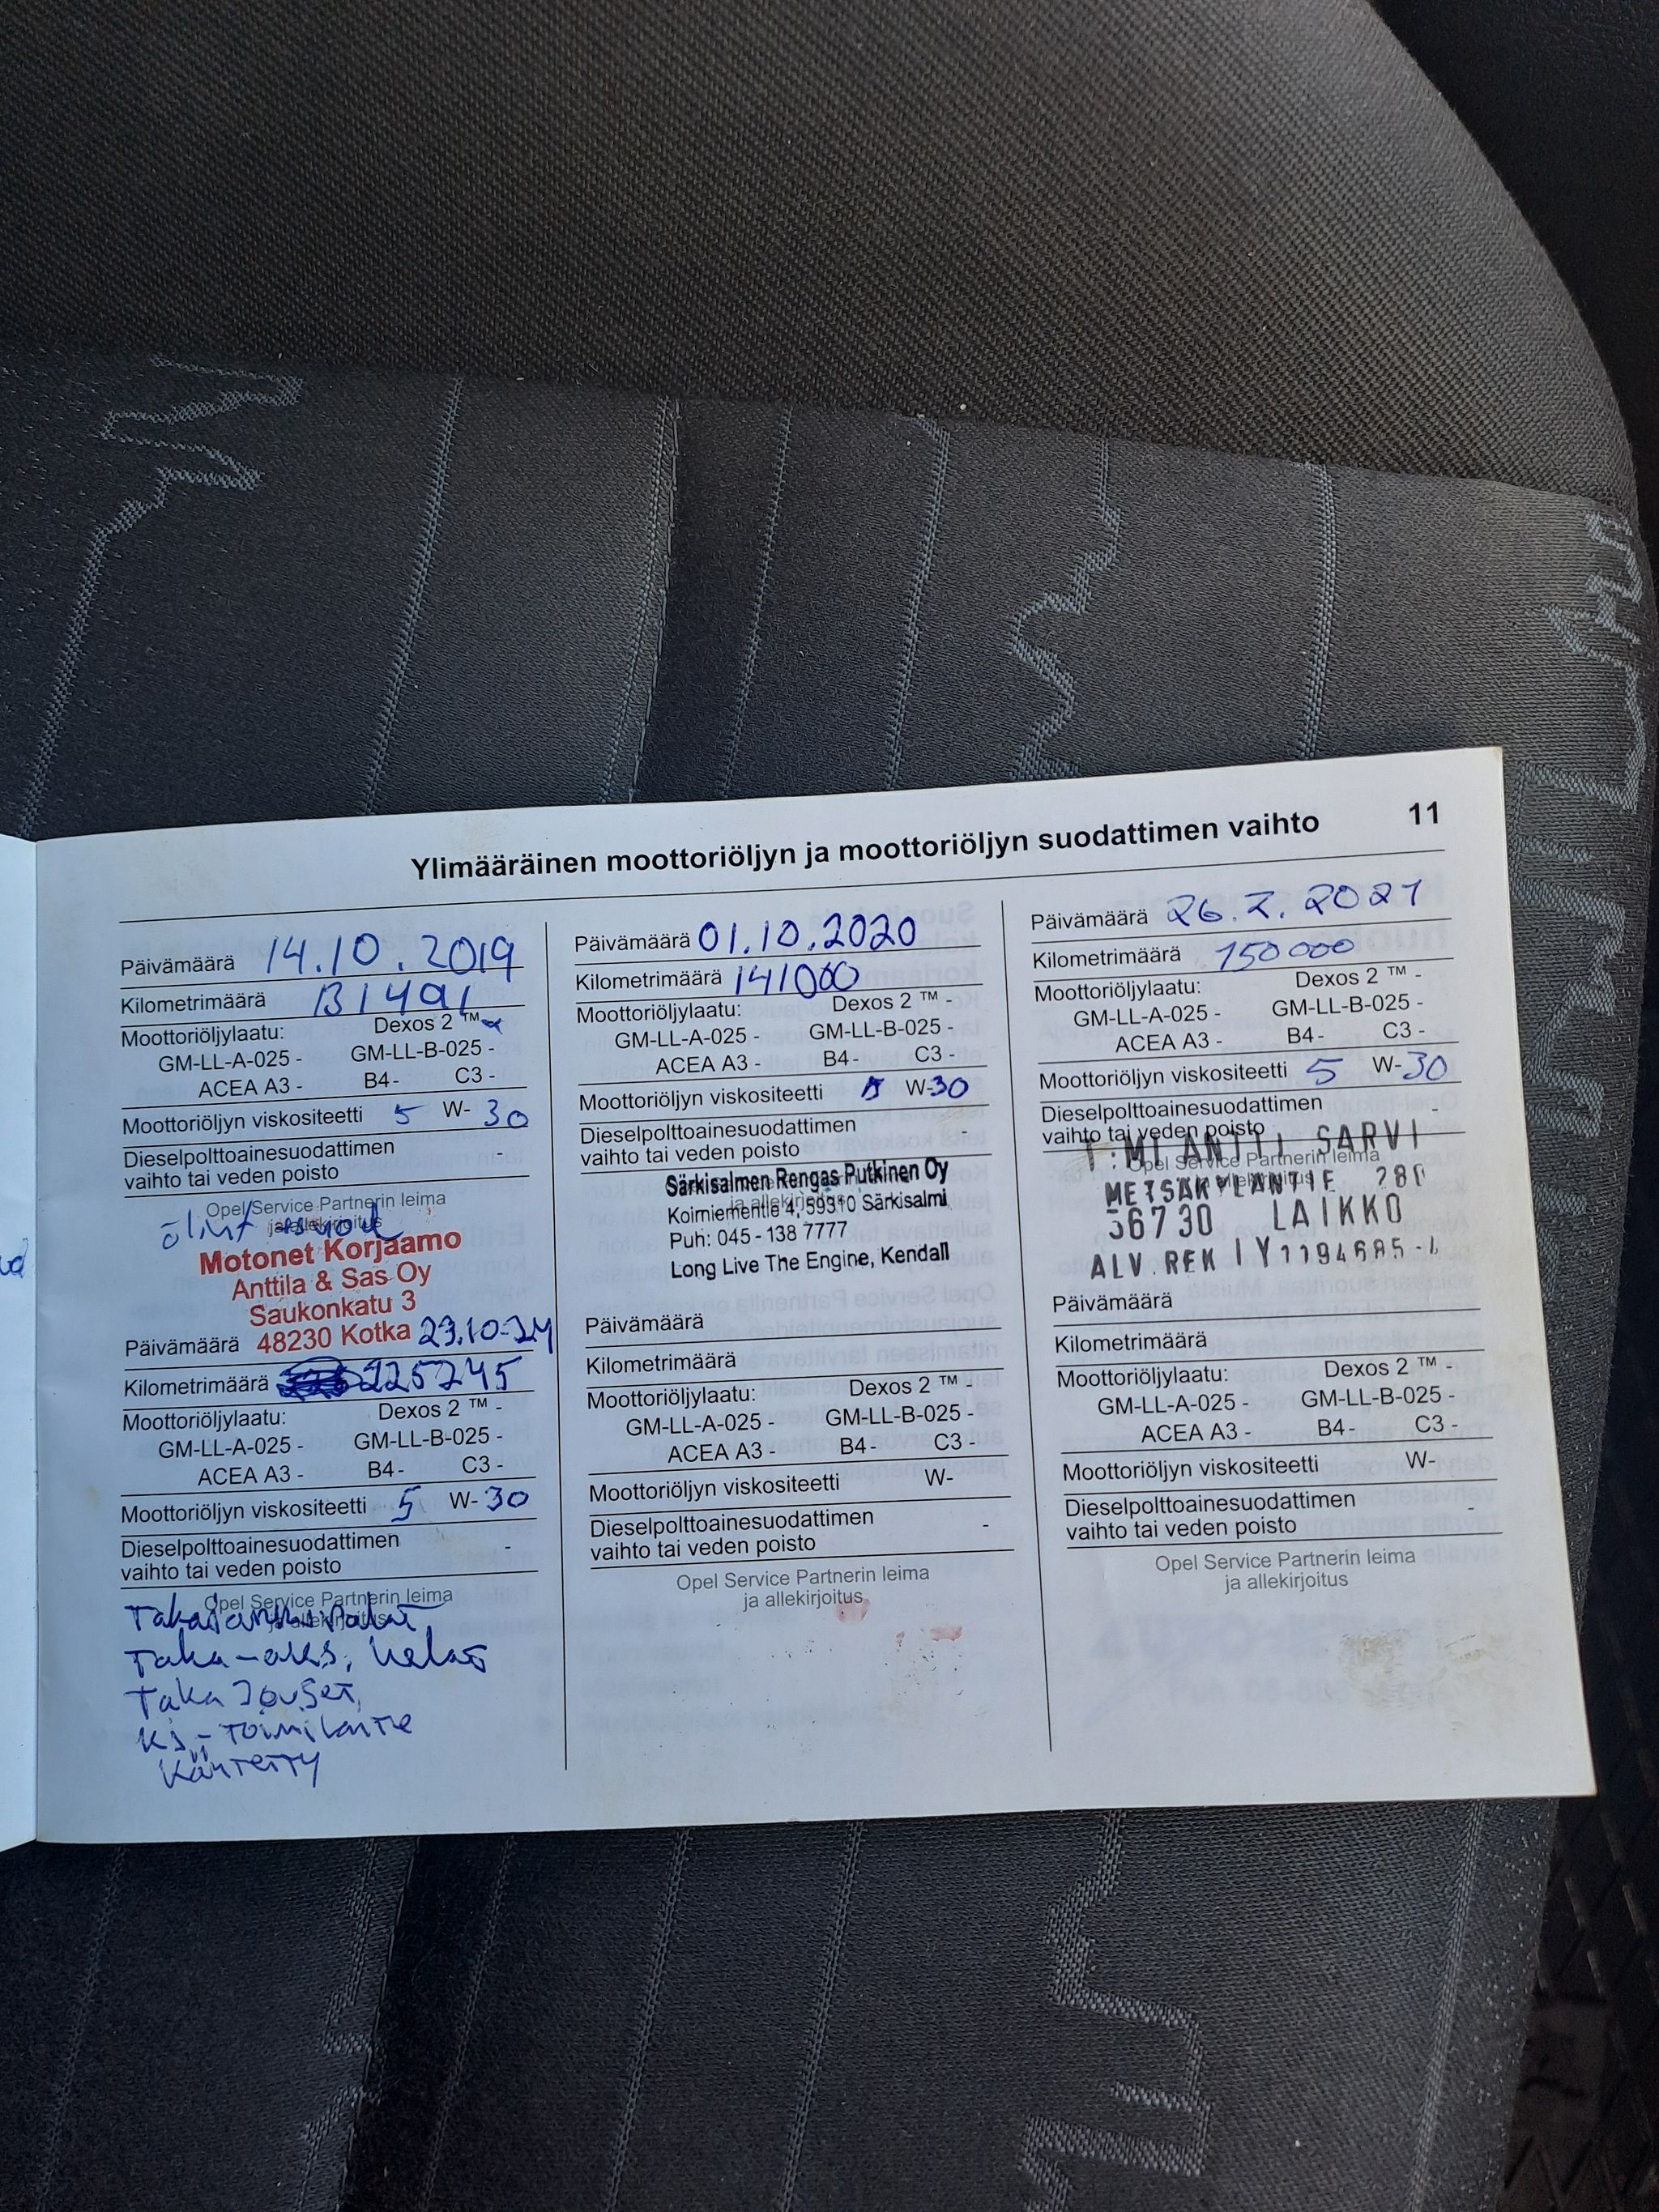 Ylimääräinen moottoriöljyn ja moottoriöljyn suodattimen vaihto
11
Päivämäärä 14.10.2019
Kilometrimäärä 131491
Moottoriöljylaatu: Dexos 2 ™ -
GM-LL-A-025 - GM-LL-B-025 -
ACEA A3 - B4 - C3 -
Moottoriöljyn viskositeetti 5 W- 30
Dieselpolttoainesuodattimen -
vaihto tai veden poisto
Opel Service Partnerin leima
ja allekirjoitus
Motonet Korjaamo
Anttila & Sas Oy
Saukonkatu 3
48230 Kotka
Päivämäärä 23.10-24
Kilometrimäärä 225245
Moottoriöljylaatu: Dexos 2 ™ -
GM-LL-A-025 - GM-LL-B-025 -
ACEA A3 - B4 - C3 -
Moottoriöljyn viskositeetti 5 W- 30
Dieselpolttoainesuodattimen -
vaihto tai veden poisto
Opel Service Partnerin leima
ja allekirjoitus
Takajarrupalat
Taka-aks.
Taka Jouset,
Kj-Toimilaite
Päivämäärä 01.10.2020
Kilometrimäärä 141000
Moottoriöljylaatu: Dexos 2 ™ -
GM-LL-A-025 - GM-LL-B-025 -
ACEA A3 - B4 - C3 -
Moottoriöljyn viskositeetti 5 W-30
Dieselpolttoainesuodattimen -
vaihto tai veden poisto
ja allekirjoitus
Särkisalmen Rengas Putkinen Oy
Koirniementie 4, 59310 Särkisalmi
Puh: 045 - 138 7777
Long Live The Engine, Kendall
Päivämäärä
Kilometrimäärä
Moottoriöljylaatu: Dexos 2 ™ -
GM-LL-A-025 - GM-LL-B-025 -
ACEA A3 - B4 - C3 -
Moottoriöljyn viskositeetti W-
Dieselpolttoainesuodattimen -
vaihto tai veden poisto
Opel Service Partnerin leima
ja allekirjoitus
Päivämäärä 26.7.2021
Kilometrimäärä 150000
Moottoriöljylaatu: Dexos 2 ™ -
GM-LL-A-025 - GM-LL-B-025 -
ACEA A3 - B4 - C3 -
Moottoriöljyn viskositeetti 5 W-30
Dieselpolttoainesuodattimen -
vaihto tai veden poisto
Opel Service Partnerin leima
T:MI ANTTI SARVI
METSÄKYLÄNTIE 280
56730 LAIKKO
ALV. REK
Päivämäärä
Kilometrimäärä
Moottoriöljylaatu: Dexos 2 ™ -
GM-LL-A-025 - GM-LL-B-025 -
ACEA A3 - B4 - C3 -
Moottoriöljyn viskositeetti W-
Dieselpolttoainesuodattimen -
vaihto tai veden poisto
Opel Service Partnerin leima
ja allekirjoitus